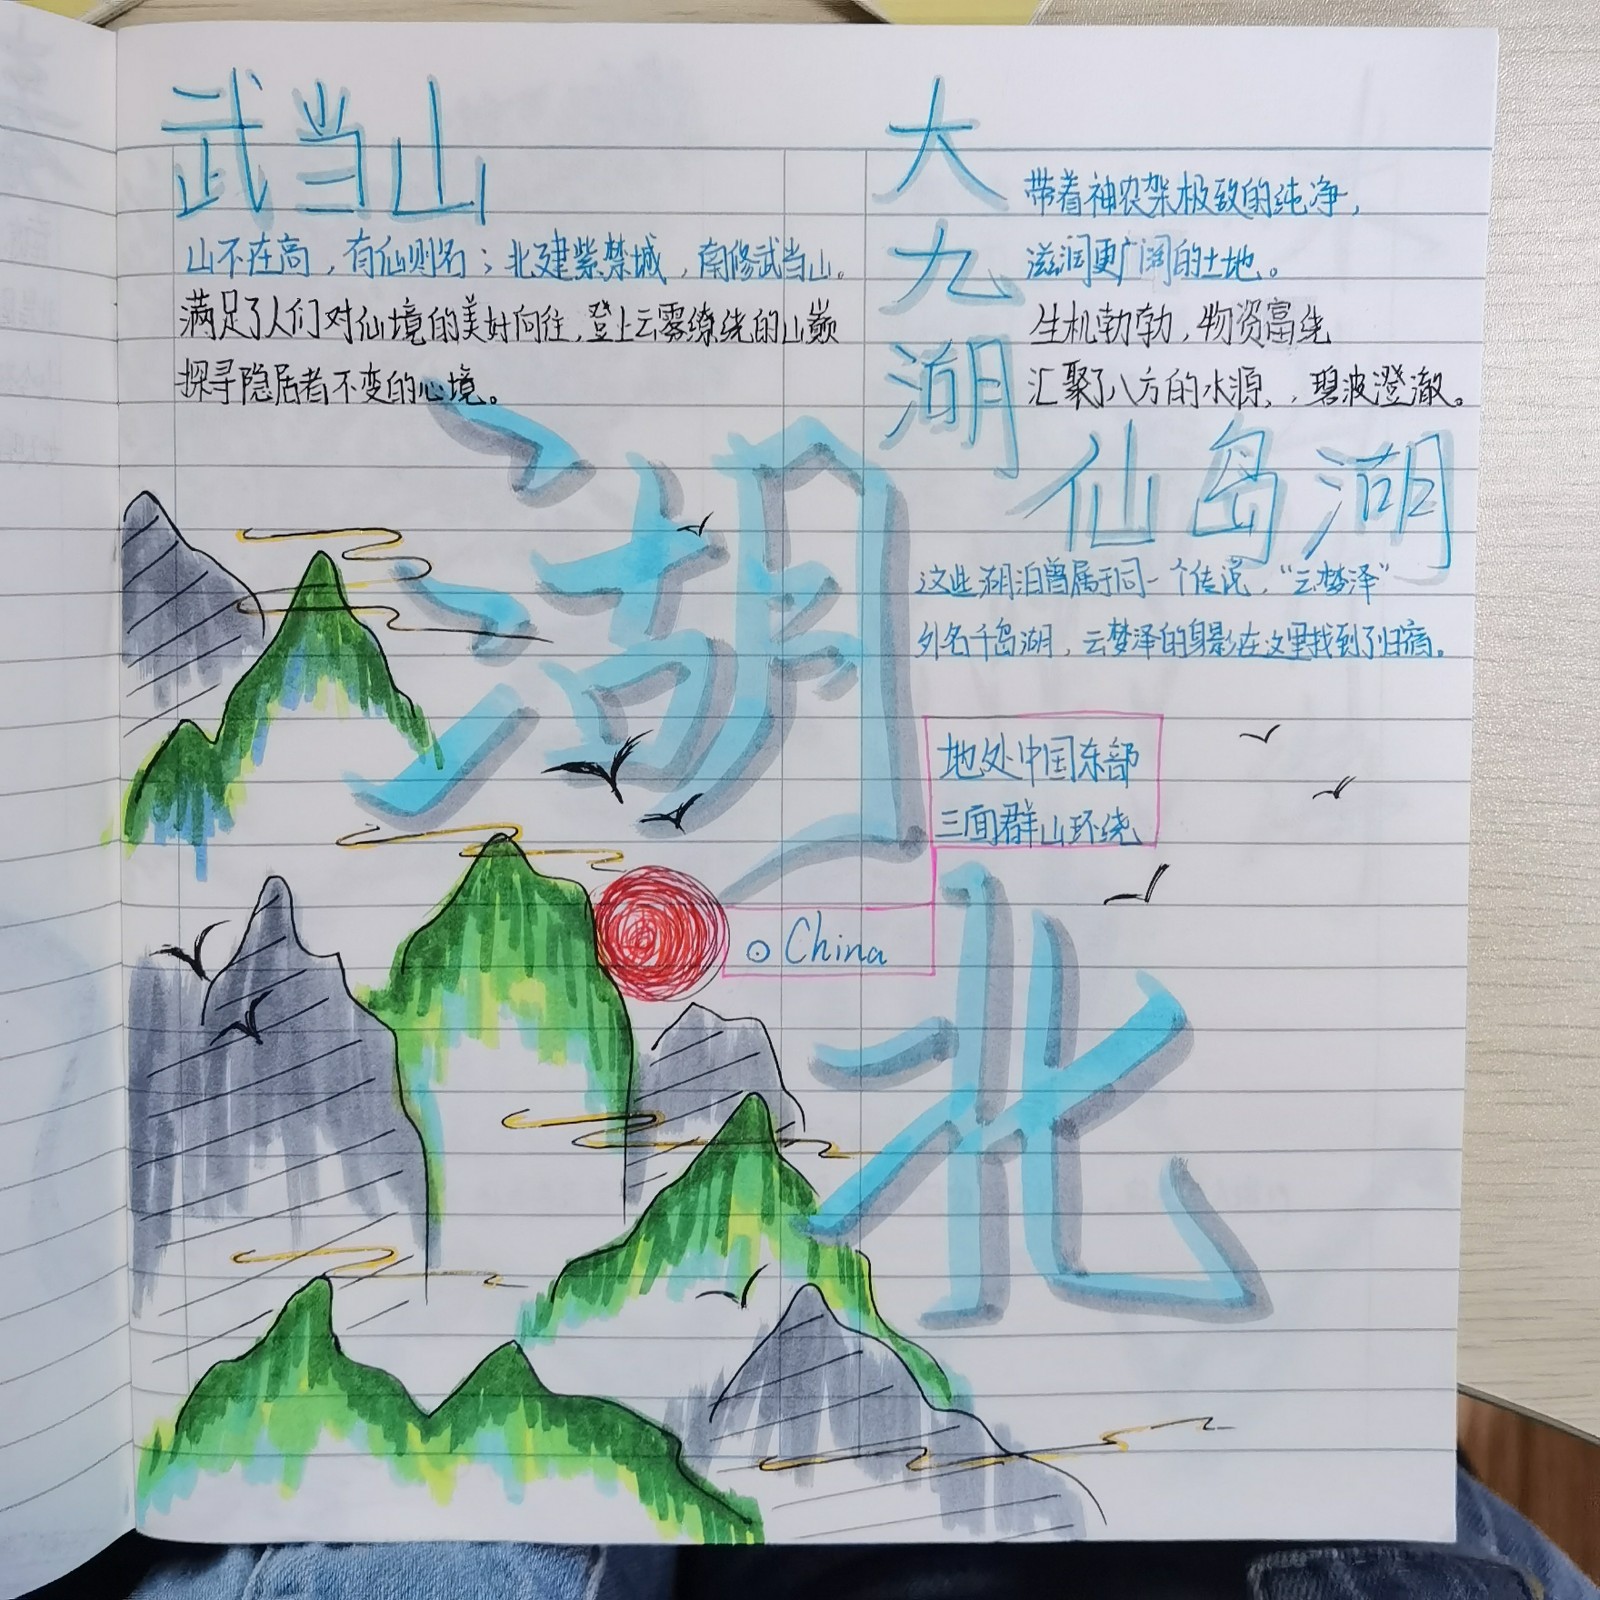 武当山
山不在高，有仙则名；北建紫禁城，南修武当山。
满足了人们对仙境的美好向往，登上云雾缭绕的山巅
探寻隐居者不变的心境。
大九湖
带着神农架极致的纯净，
滋润更广阔的土地。
生机勃勃，物资富绕
汇聚了八方的水源，碧波澄澈。
仙岛湖
这些湖泊曾属于同一个传说，“云梦泽”
外名千岛湖，云梦泽的身影在这里找到了归宿。
地处中国东部
三面群山环绕
⊙China
湖北